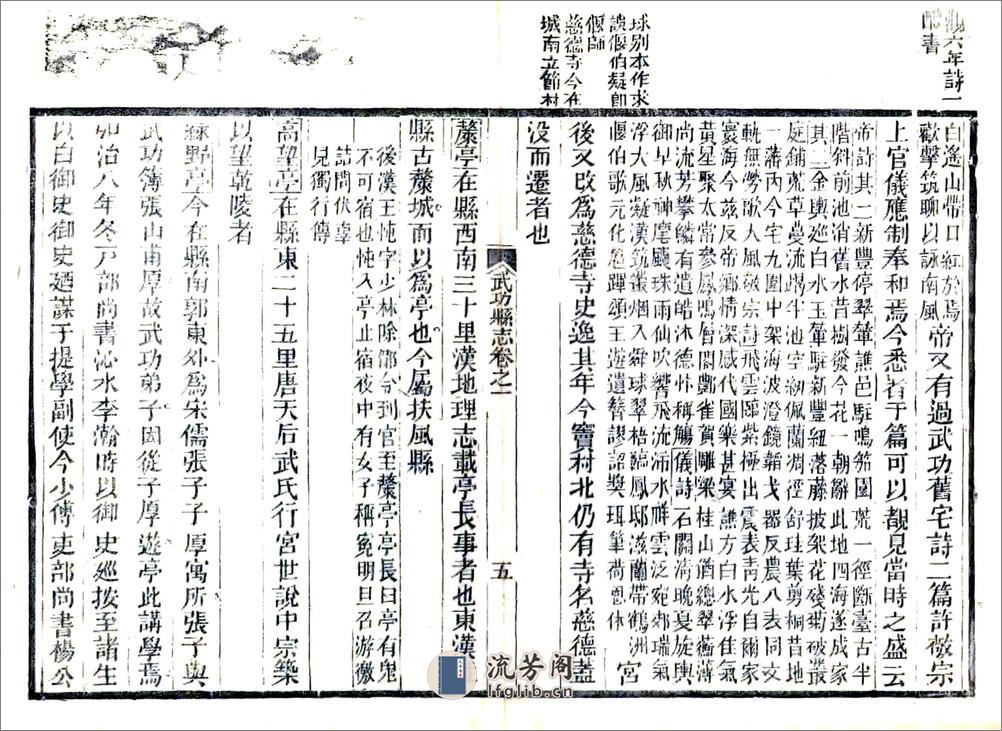 觀六年詩一
書
白遙山帶口紅於焉
歡擊筑聊以詠南風
帝又有過武功舊宅詩二篇許敬宗
上官儀應制奉和焉今悉著于篇可以覩見當時之盛云
帝詩其二新豐停翠輦譙邑駐鳴笳園荒一徑斷臺古半
階斜前池消舊水昔樹發今花一朝辭此地四海遂成家
其二金輿巡白水玉輦駐新豐紐落藤披架花殘菊破叢
庭鋪荒草蔓流竭半池空紉佩蘭凋徑舒珪葉剪桐昔地
一藩丙今宅九圍中架海波澄鏡韜戈器反農八表同文
軌無勞歌大風敬宗詩飛雲臨紫極出震表靑光自爾家
寰海今兹反帝鄉情深感代國樂甚宴譙方白水浮佳氣
黃星聚太常參鳳鳴層閣酆雀賀雕梁桂山猶總翠蘅薄
尚流芳攀鱗有遺皓沐德忭稱觴儀詩石關清晚夏旋輿
御早秋神麾颺珠雨仙吹響飛流沛水祥雲泛宛郊瑞氣
浮大風凝漢筑叢烟入舜球翠梧臨鳳邸滋蘭帶鶴洲
偃伯歌元化扈蹕頌王遊遺簪謬詔獎珥筆荷恩休
宮
後又改爲慈德寺史逸其年今竇村北仍有寺名慈德蓋
没而遷者也
球别本作求
諛偃伯疑卽
偃師
慈德寺今在
城南立節村
武功縣志卷之一
五
斄亭在縣西南三十里漢地理志載亭長事者也東漢
縣古斄城而以爲亭也今屬扶風縣
後漢王忳字少林除郿令到官至斄亭亭長曰亭有鬼
不可宿也忳入亭止宿夜中有女子稱寃明旦召游徼
詰問伏辜
見獨行傳
高望亭在縣東二十五里唐天后武氏行宮世說中宗築
以望乾陵者
綠野亭今在縣南郭東外爲宋儒張子子厚寓所張子與
武功簿張山甫厚故武功弟子因從子厚遊亭此講學焉
弘治八年冬戸部尚書沁水李瀚時以御史廵按至諸生
以白御史御史廼謀于提學副使今少傅吏部尚書楊公
流芳阁
lfglib.cn